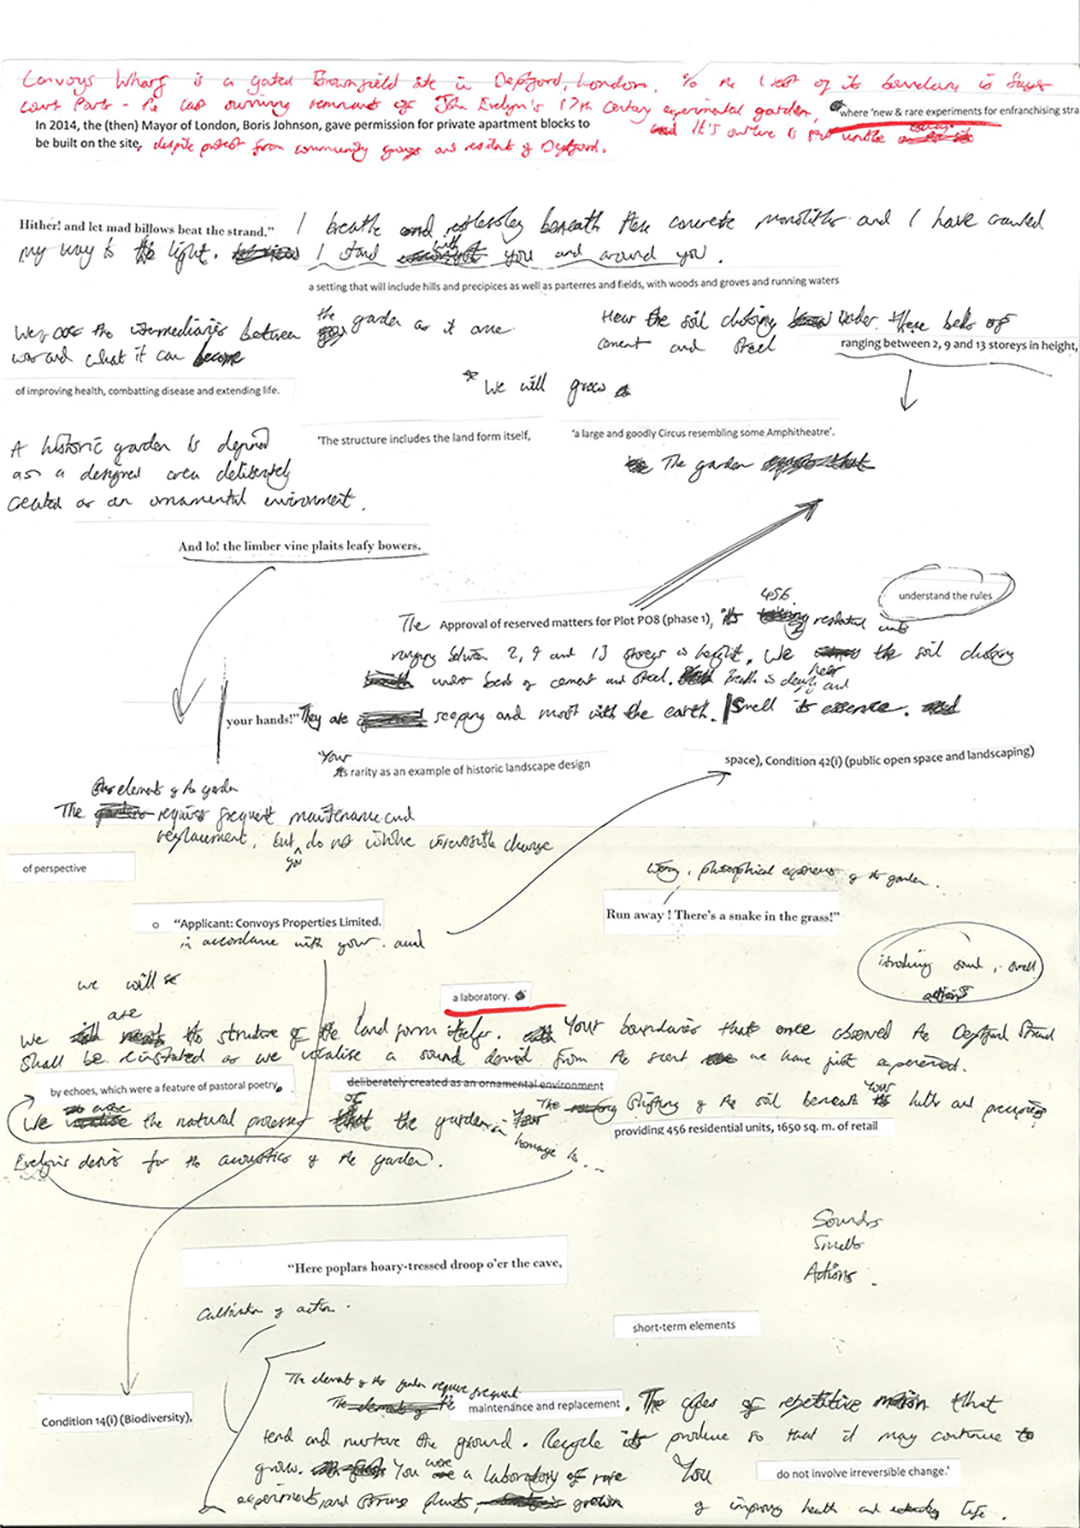 Convoys Wharf is a gated Brownfield site in Deptford, London. To the West of its boundary is Sayes
Court Park - the last surviving remnant of John Evelyn's 17th Century experimental garden,
where 'new & rare experiments for enfranchising stra
In 2014, the (then) Mayor of London, Boris Johnson, gave permission for private apartment blocks to
be built on the site, despite protest from community groups and residents of Deptford.
It's outline is
Hither! and let mad billows beat the strand." I breathe restlessly beneath these concrete monoliths and I have crawled
my way to the light. I stand with you and around you.
a setting that will include hills and precipices as well as parterres and fields, with woods and groves and running waters
We are the intermediaries between the garden as it once
was and what it can become
Hear the soil choking under these beds of
cement and steel
ranging between 2, 9 and 13 storeys in height,
of improving health, combatting disease and extending life.
* We will grow
A historic garden is defined
as a designed area deliberately
created as an ornamental environment.
'The structure includes the land form itself,
'a large and goodly Circus resembling some Amphitheatre'.
The garden
And lo! the limber vine plaits leafy bowers.
understand the rules
The Approval of reserved matters for Plot PO8 (phase 1), 456 residential units
ranging between 2, 9 and 13 storeys in height. We hear the soil choking
under beds of cement and steel. Breath is deeply and
your hands!" They are seeping and moist with the earth. Smell its essence.
Your rarity as an example of historic landscape design
space), Condition 42(i) (public open space and landscaping)
elements of the garden
The requires frequent maintenance and
replacement, but you do not involve irreversible change
of perspective
philosophical experiences of the garden.
Run away ! There's a snake in the grass!"
o "Applicant: Convoys Properties Limited.
in accordance with your and
involving sound, smell
actions
we will
a laboratory.
We are the structure of the land form itself. Your boundaries that once observed the Deptford Strand
shall be reinstated as we vocalise a sound derived from the scent we have just experienced.
by echoes, which were a feature of pastoral poetry.
deliberately created as an ornamental environment
We the natural processes of the garden The shifting of the soil beneath your hills and precipices
providing 456 residential units, 1650 sq. m. of retail
homage to...
Evelyn's desire for the acoustics of the garden.
Sounds
Smells
Actions.
"Here poplars hoary-tressed droop o'er the cave,
Cultivation of action.
short-term elements
The elements of the garden require frequent
maintenance and replacement. The cycles of repetitive motion that
Condition 14(i) (Biodiversity),
tend and nurture the ground. Recycle its produce so that it may continue to
grow. You were a laboratory of rare You do not involve irreversible change.'
experiments and strange plants grown of improving health and life.